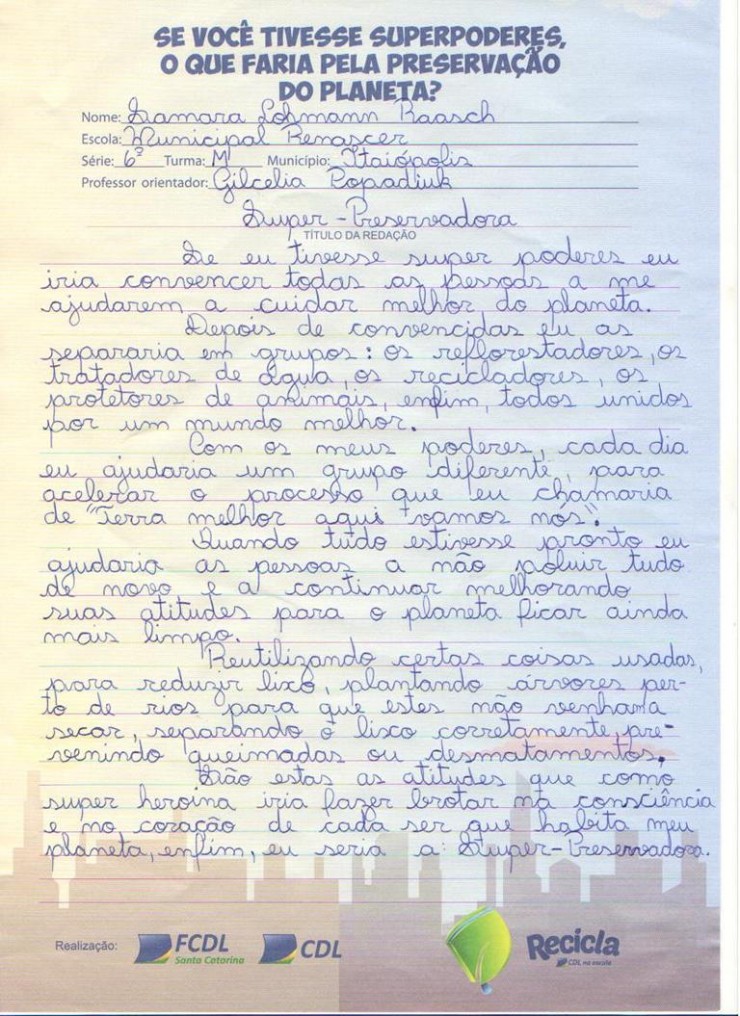 SE VOCÊ TIVESSE SUPERPODERES,
O QUE FARIA PELA PRESERVAÇÃO
DO PLANETA?
Nome: Siamara Lohmann Raasch
Escola: Municipal Renascer
Série: 6º Turma: M Município: Itaiópolis
Professor orientador: Gilcelia Popadiuk
Super-Preservadora
TÍTULO DA REDAÇÃO
Se eu tivesse super poderes eu
iria convencer todas as pessoas a me
ajudarem a cuidar melhor do planeta.
Depois de convencidas eu as
separaria em grupos: os reflorestadores, os
tratadores de água, os recicladores, os
protetores de animais, enfim, todos unidos
por um mundo melhor.
Com os meus poderes, cada dia
eu ajudaria um grupo diferente, para
acelerar o processo que eu chamaria
de "Terra melhor aqui vamos nós".
Quando tudo estivesse pronto eu
ajudaria as pessoas a não poluir tudo
de novo e a continuar melhorando
suas atitudes para o planeta ficar ainda
mais limpo.
Reutilizando certas coisas usadas,
para reduzir lixo, plantando árvores per-
to de rios para que estes não venham a
secar, separando o lixo corretamente, pre-
venindo queimadas ou desmatamentos.
São estas as atitudes que como
super heroína iria fazer brotar na consciência
e no coração de cada ser que habita meu
planeta, enfim, eu seria a Super-Preservadora.
Realização: FCDL Santa Catarina CDL Recicla CDL na escola